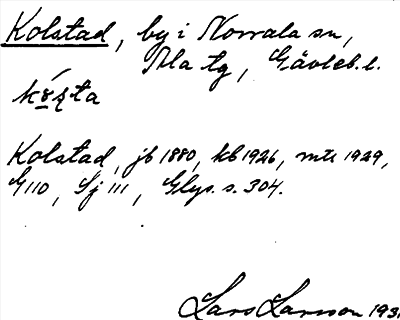 Kolstad, by i Norrala sn,
Ala tg, Gävleb. l.
Kolstad, jb 1880, kb 1926, mtl 1929,
G 110, Sj 111, Glys. s. 304.
Lars Larsson 193